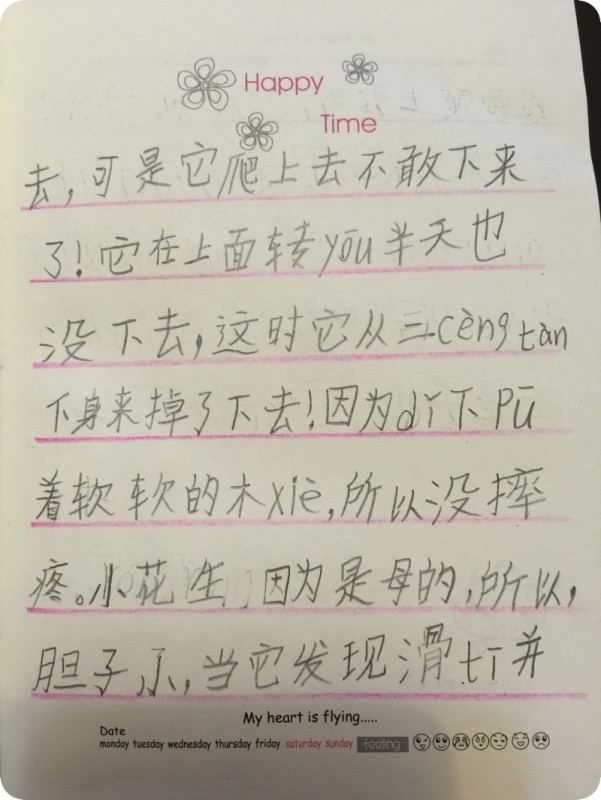 Happy
Time
去,可是它爬上去不敢下来
了!它在上面转yōu半天也
没下去,这时它从三cèng tàn
下身来掉了下去!因为dǐ下Pū
着软软的木xiè,所以没摔
疼。小花生,因为是母的,所以,
胆子小,当它发现滑tī并
My heart is flying.....
Date
monday tuesday wednesday thursday friday saturday sunday feeling